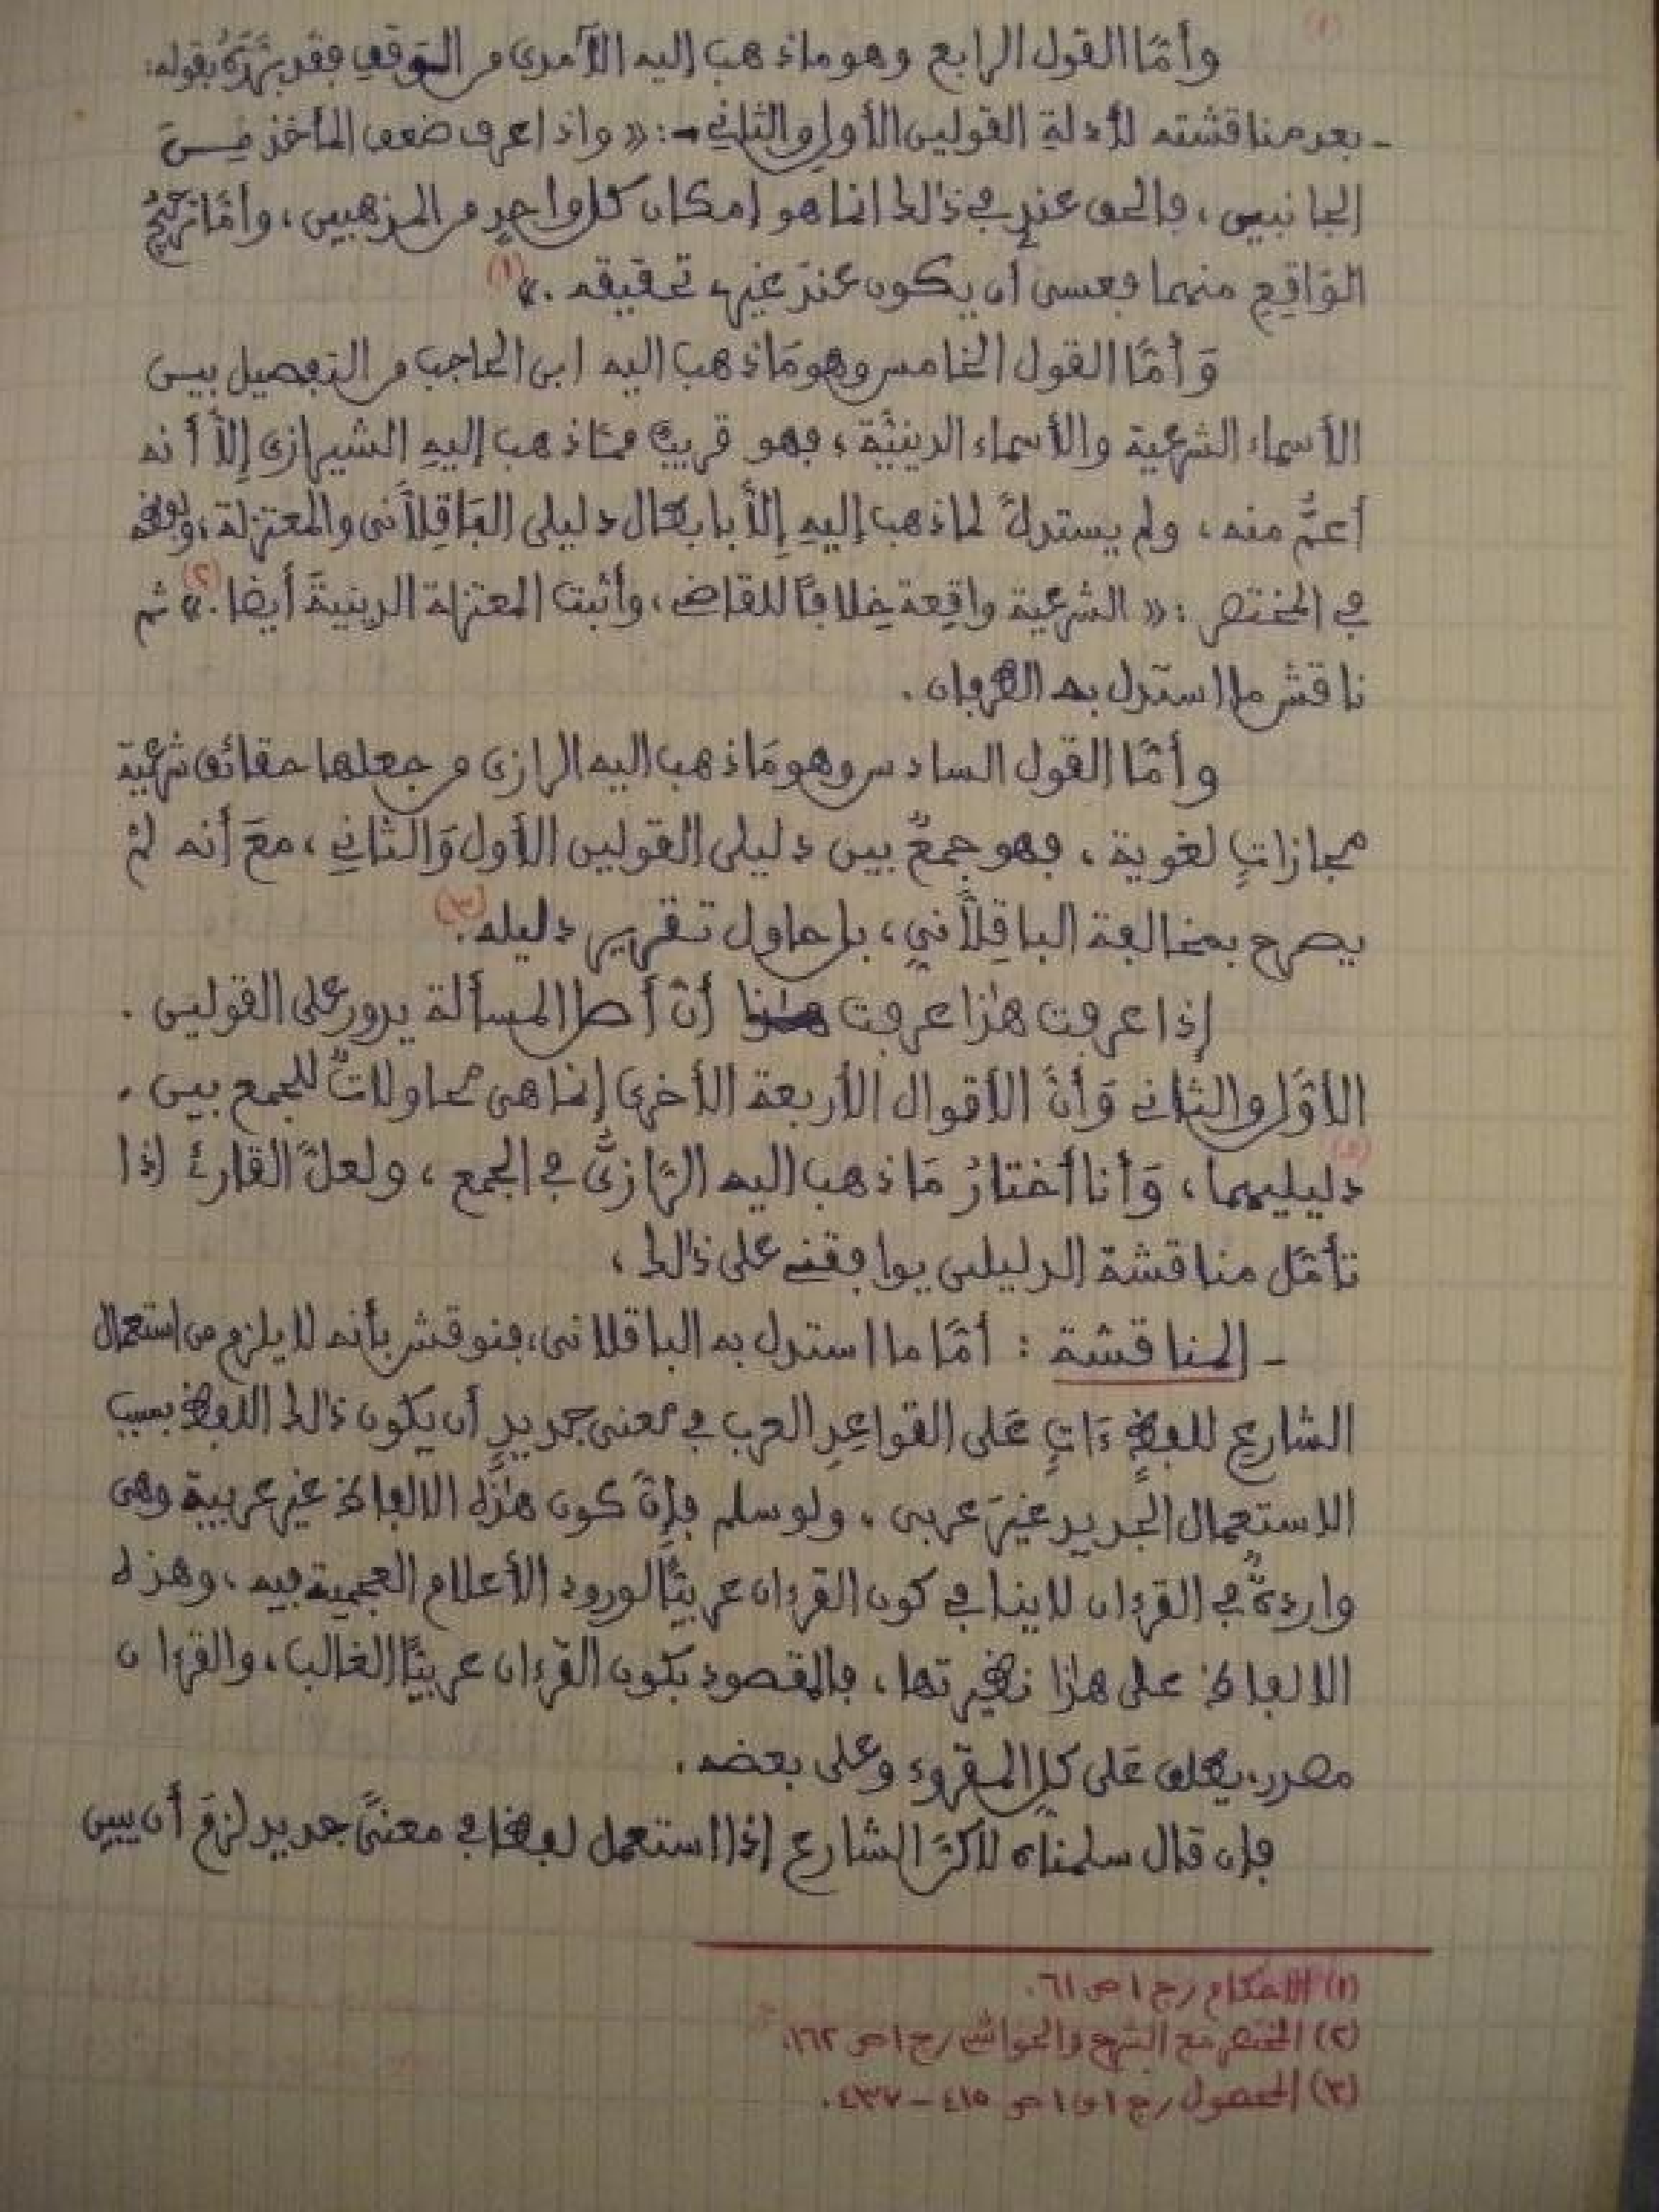 وأمّا القول الرابع وهو ما ذهب إليه الآمدى من التوقف فقد برّره بقوله:
- بعد مناقشته لأدلة القولين الأول والثاني -: «وإذا عرف ضعف المأخذ من
الجانبين، فالحق عندي في ذلك انما هو إمكان كل واحدٍ من المذهبين، وأمّا ترجيحُ
الوَاقِعِ منهما فعسى أن يكون عندَ غيري تحقيقه.» (١)
وَأمّا القول الخامس وهو مَا ذهب اليه ابن الحاجب من التفصيل بين
الأسماء الشرعية والأسماء الدينيّة، فهو قريبٌ ممّا ذهب إليهِ الشيرازى إلاّ أنه
أعمُّ منه، ولم يستدلَّ لما ذهب إليهِ إلاّ بابطال دليلى البَاقِلاَّنى والمعتزلة، ولفظه
في المختصر: «الشرعية واقعة خِلافًا للقاضي، وأثبت المعتزلة الدينيةَ أيضا.» (٢) ثم
ناقش ما استدل به الطرفان.
وأمّا القول السادس وهو مَا ذهب اليه الرازى من جعلها حقائق شرعيّة
مجازاتٍ لغوية، فهو جمعٌ بين دليلى القولين الأول وَالثاني، معَ أنه لمْ
يصرح بمخالفة الباقِلاَّنيِ، بل حاول تقرير دليله. (٣)
إذا عرفت هذا عرفت أنّ أصل المسألة يدور على القولين.
الأوَّل والثاني وَأنَّ الأقوال الأربعة الأخرى إنما هى محاولاتٌ للجمع بين.
دليليهما، وَأنا أختارُ مَا ذهب اليه الرّازىُّ في الجمع، ولعلَّ القارئ إذا
تأمّل مناقشة الدليلين يوافقني على ذلك،
- المناقشة: أمّا ما استدل به الباقلانى، فنوقش بأنه لا يلزم من استعمال
الشارع للفظٍ ءَاتٍ عَلى القواعِدِ العرب في معنى جديدٍ أن يكون ذلك اللفظ بسبب
الاستعمال الجديد غيرَ عربى، ولو سلم فإنّ كون هٰذه الالفاظ غير عربية وهى
واردةٌ في القرءان لا ينافي كون القرءان عربيًّا لورود الأعلام العجمية فيه، وهذه
الالفاظ على هٰذا نظيرتها، فالمقصود بكون القرءان عربيًّا الغالب، والقرءان
مصدر، يطلق عَلى كل المقروء وعلى بعضه.
فإن قال سلمناه لاكنّ الشارع إذا استعمل لفظا في معنىً جديد لزمَ أن يبين
(١) الاحكام / ج ١ ص ٦١.
(٢) المختصر مع الشرح والحواشي / ج ١ ص ١٦٢.
(٣) المحصول / ج ١ ق ١ ص ٤١٥ - ٤٣٧.